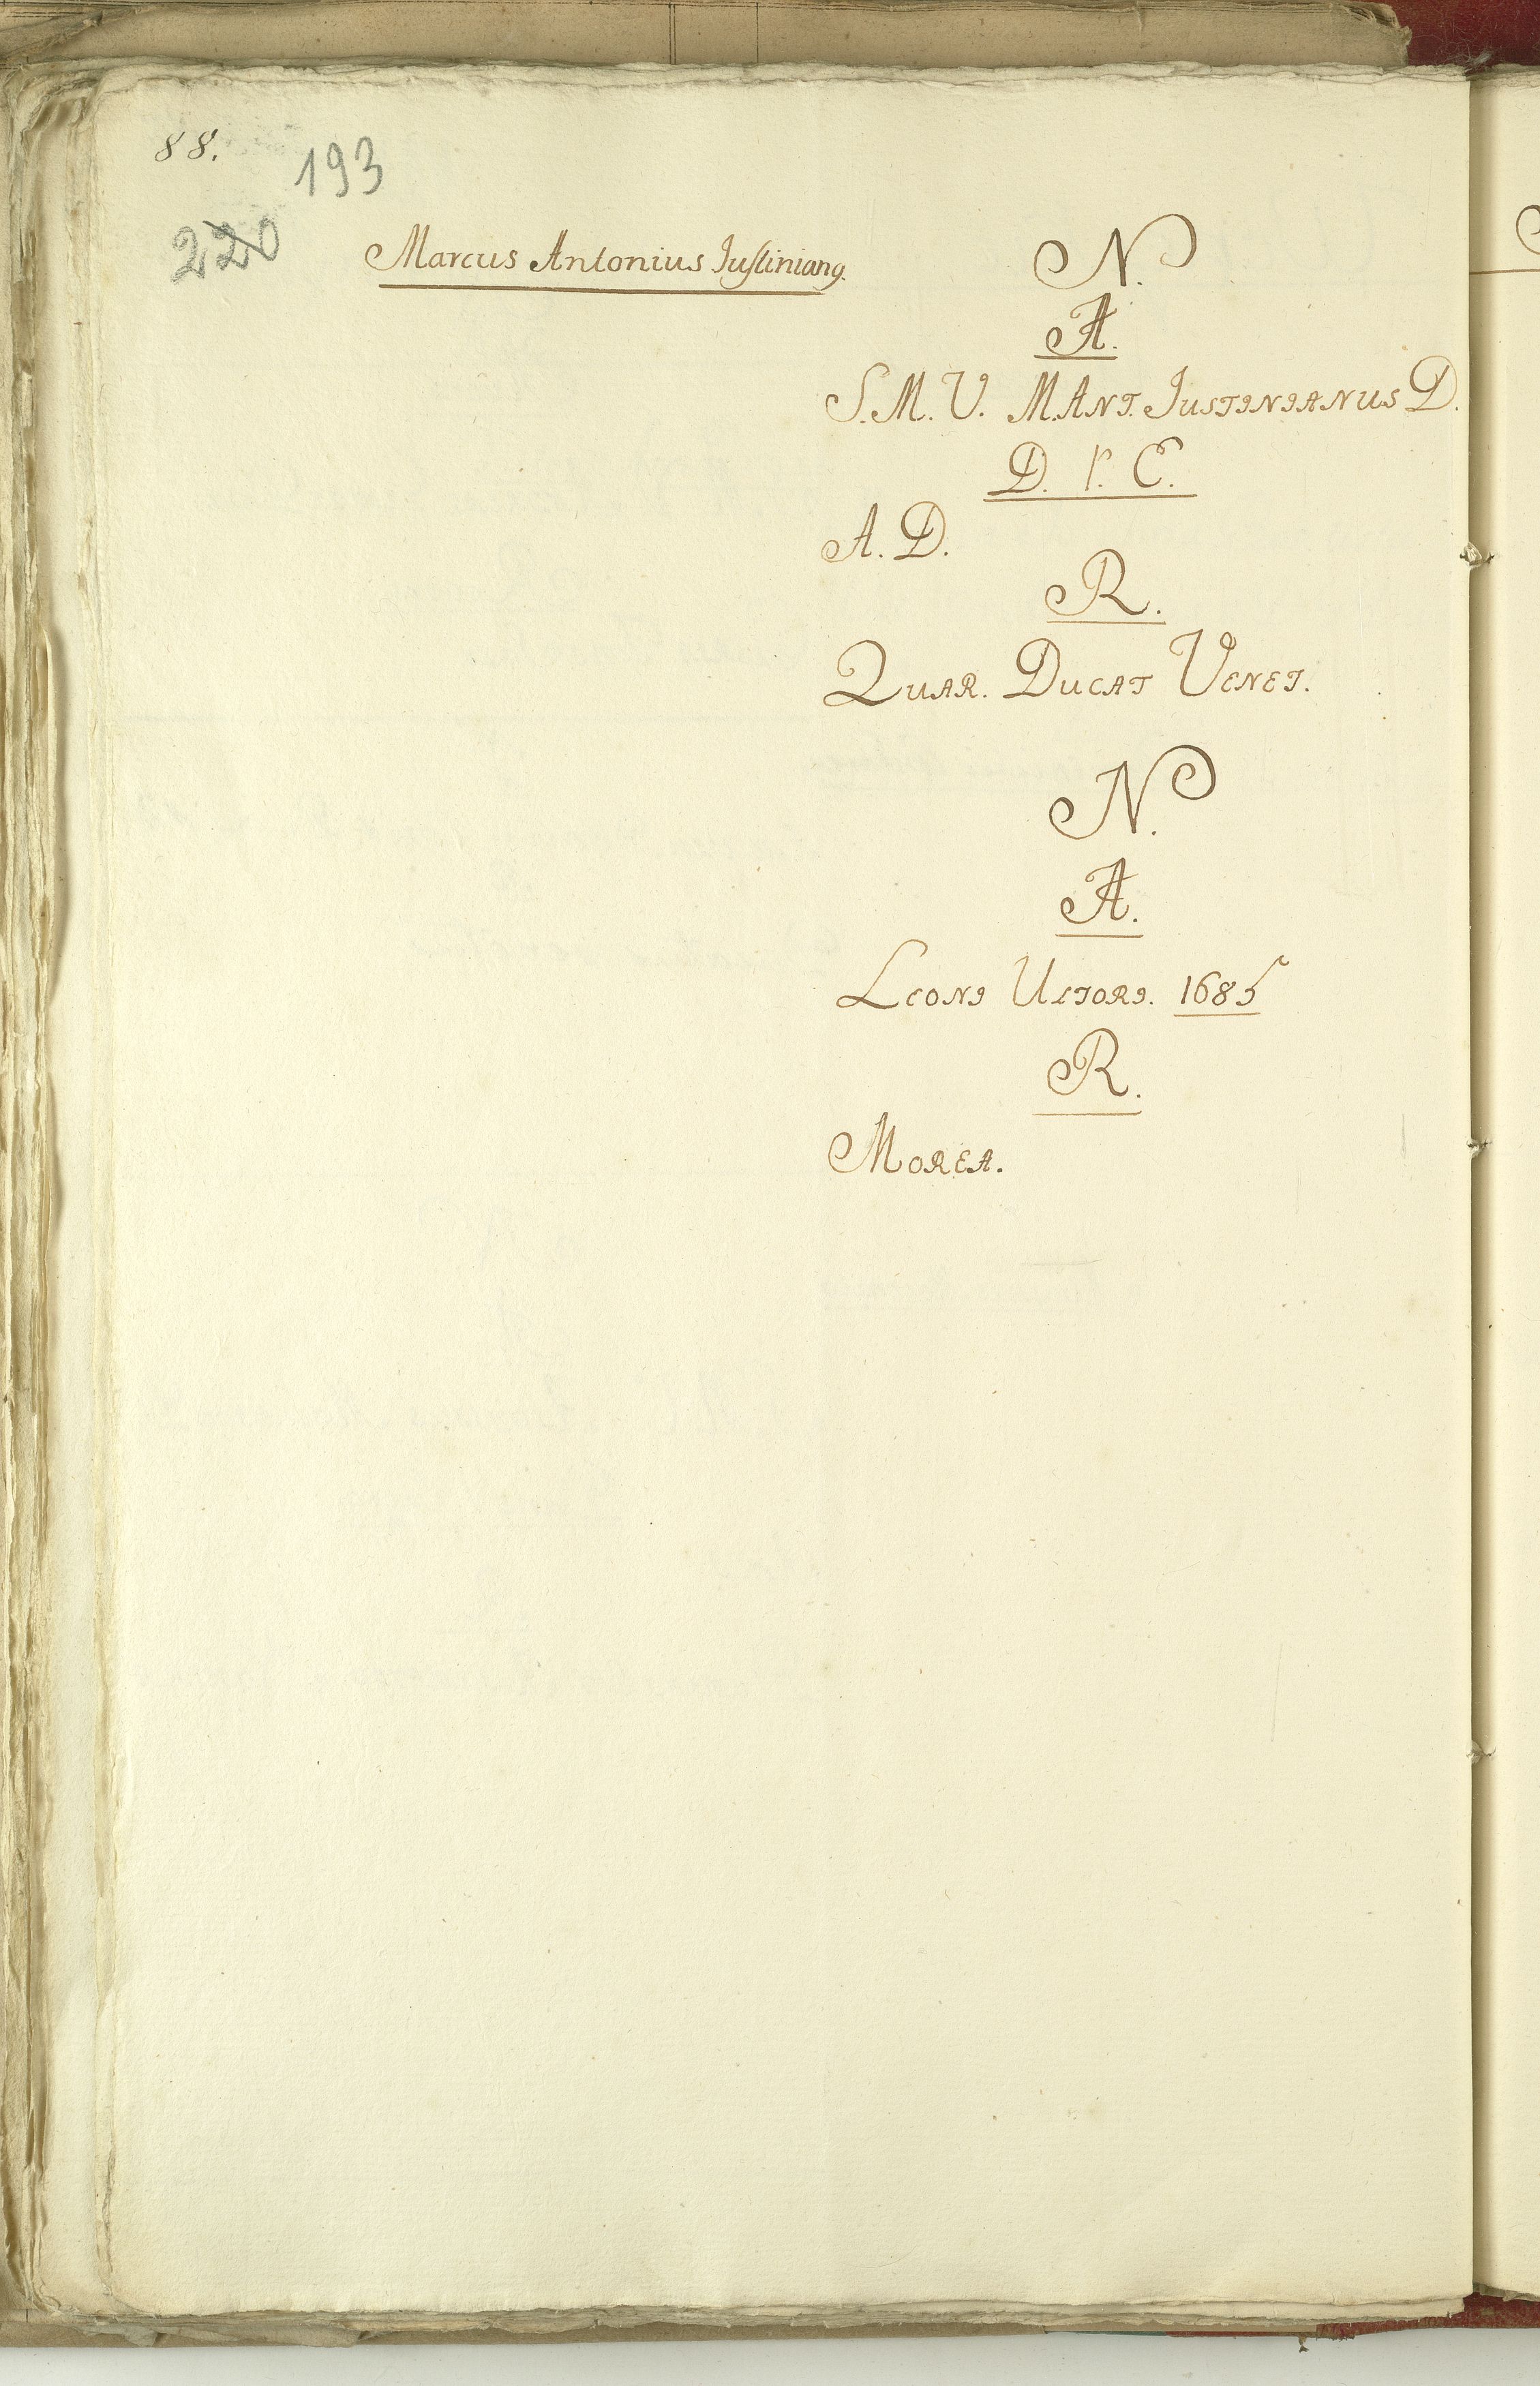 88.
193
220
Marcus Antonius Iuſtinianꝰ.
N.
A.
S. M. V. M. ANT. IUSTINIANUS D.
D. I. C.
A. D.
R.
QUAR. DUCAT VENET.
N.
A.
LEONI ULTORI. 1685
R.
MOREA.